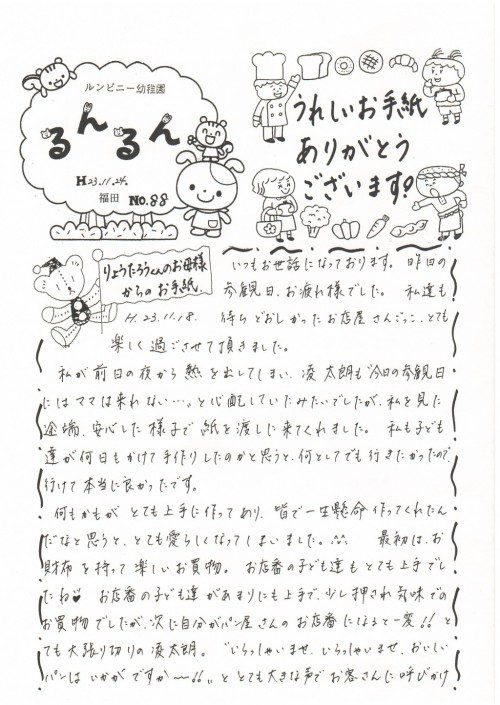 ルンビニー幼稚園
るんるん
H23.11.24.
福田 No.88
うれしいお手紙
ありがとう
ございます!
りょうたろうくんのお母様
からのお手紙
H.23.11.18.
いつもお世話になっております。昨日の
参観日、お疲れ様でした。 私達も
待ちどおしかったお店屋さんごっこ、とても
楽しく過ごさせて頂きました。
私が前日の夜から熱を出してしまい、凌太朗も"今日の参観日
にはママは来れない…"と心配していたみたいでしたが、私を見た
途端、安心した様子で紙を渡しに来てくれました。 私も子ども
達が何日もかけて手作りしたのかと思うと、何としてでも行きたかったので
行けて本当に良かったです。
何もかもが とても上手に作ってあり、皆で一生懸命作ってくれたん
だなと思うと、とても愛らしくなってしまいました。^^ 最初は、お
財布を持って楽しいお買物。 お店番の子ども達もとても上手でし
たね♥ お店番の子ども達があまりにも上手で、少し押され気味での
お買物でしたが、次に自分がパン屋さんのお店番になると一変!! と
ても大張り切りの凌太朗。 "いらっしゃいませ、いらっしゃいませ、おいしい
パンはいかがですか〜!!"ととても大きな声でお客さんに呼びかけ